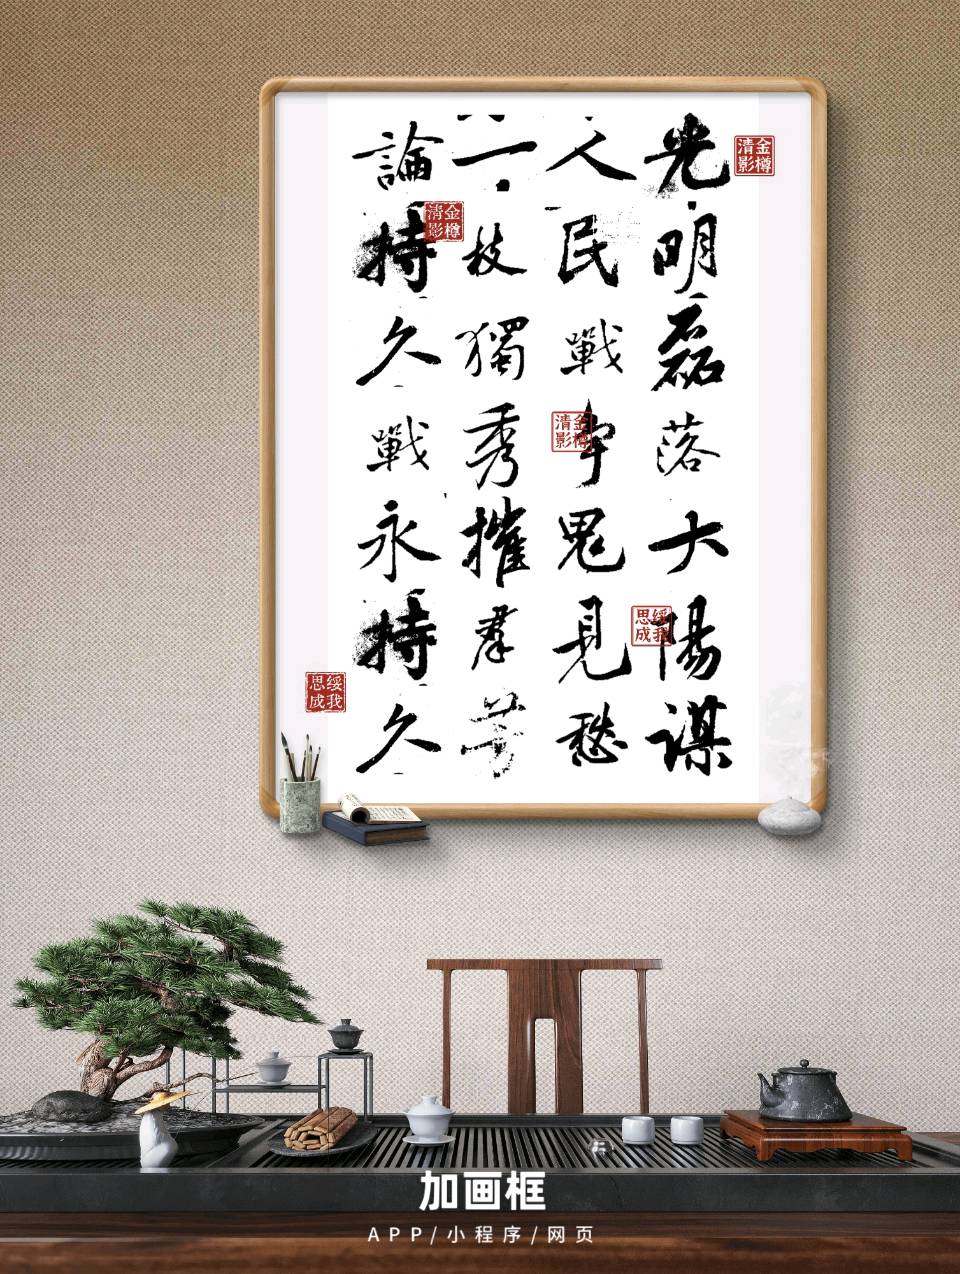 光明磊落大陽謀
人民戰争鬼見愁
一枝獨秀摧羣芳
論持久戰永持久
金樽清影
金樽清影
金樽清影
绥我思成
绥我思成
加画框
APP/小程序/网页